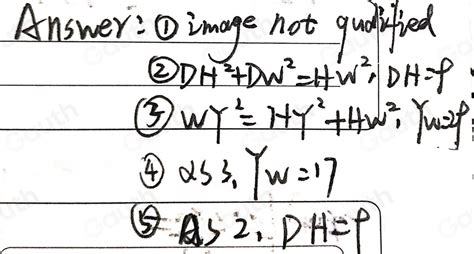 Answer: ① image not qualified
② DH²+DW²=HW², DH=9
③ WY²=HY²+HW², YW=29
④ as 3, YW=17
⑤ As 2, DH=9